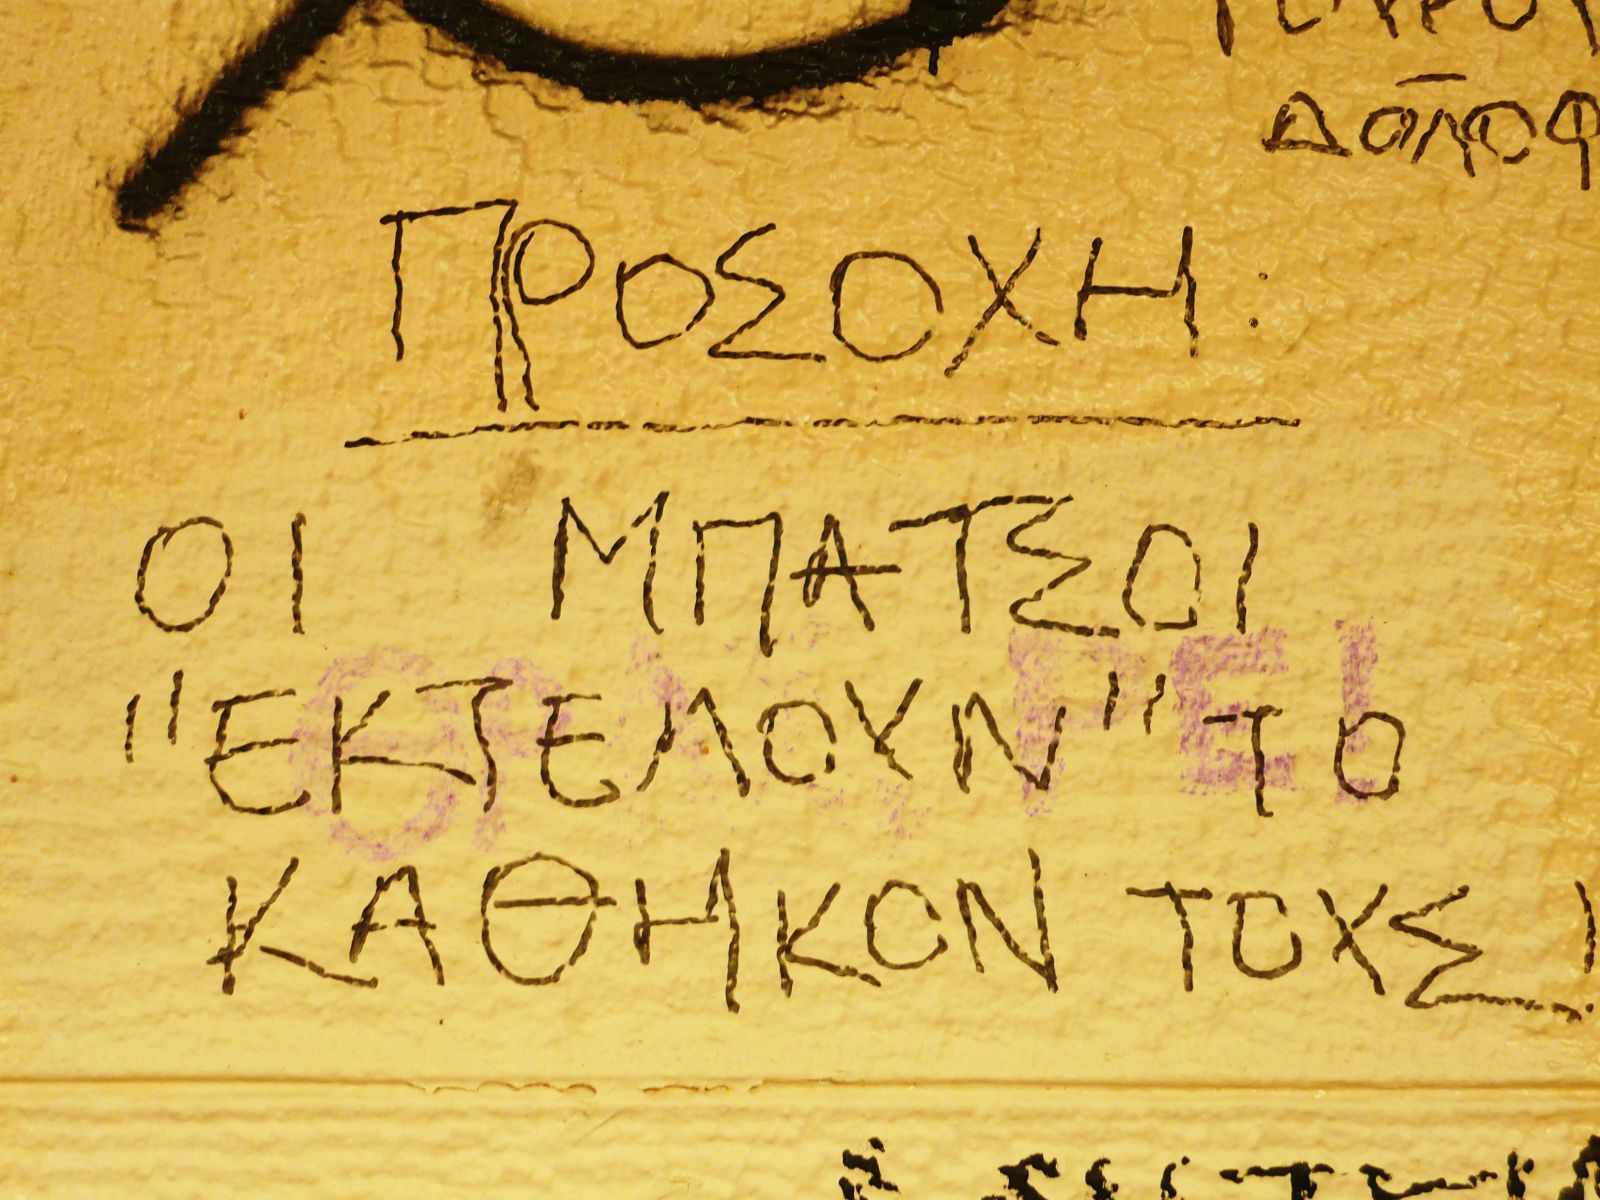 ΠΡΟΣΟΧΗ:
ΟΙ ΜΠΑΤΣΟΙ
"ΕΚΤΕΛΟΥΝ" ΤΟ
ΚΑΘΗΚΟΝ ΤΟΥΣ!